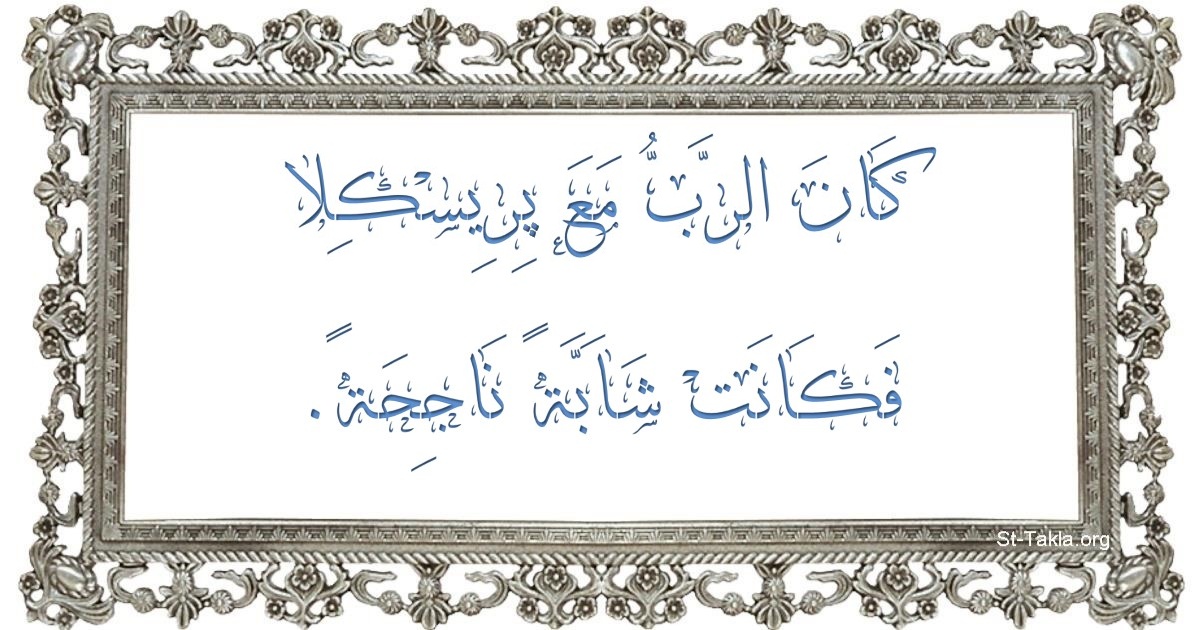 كَانَ الرَّبُّ مَعَ پِرِيِسْكِلِا
فَكَانَتْ شَابَّةً نَاجِحَةً.
St-Takla.org